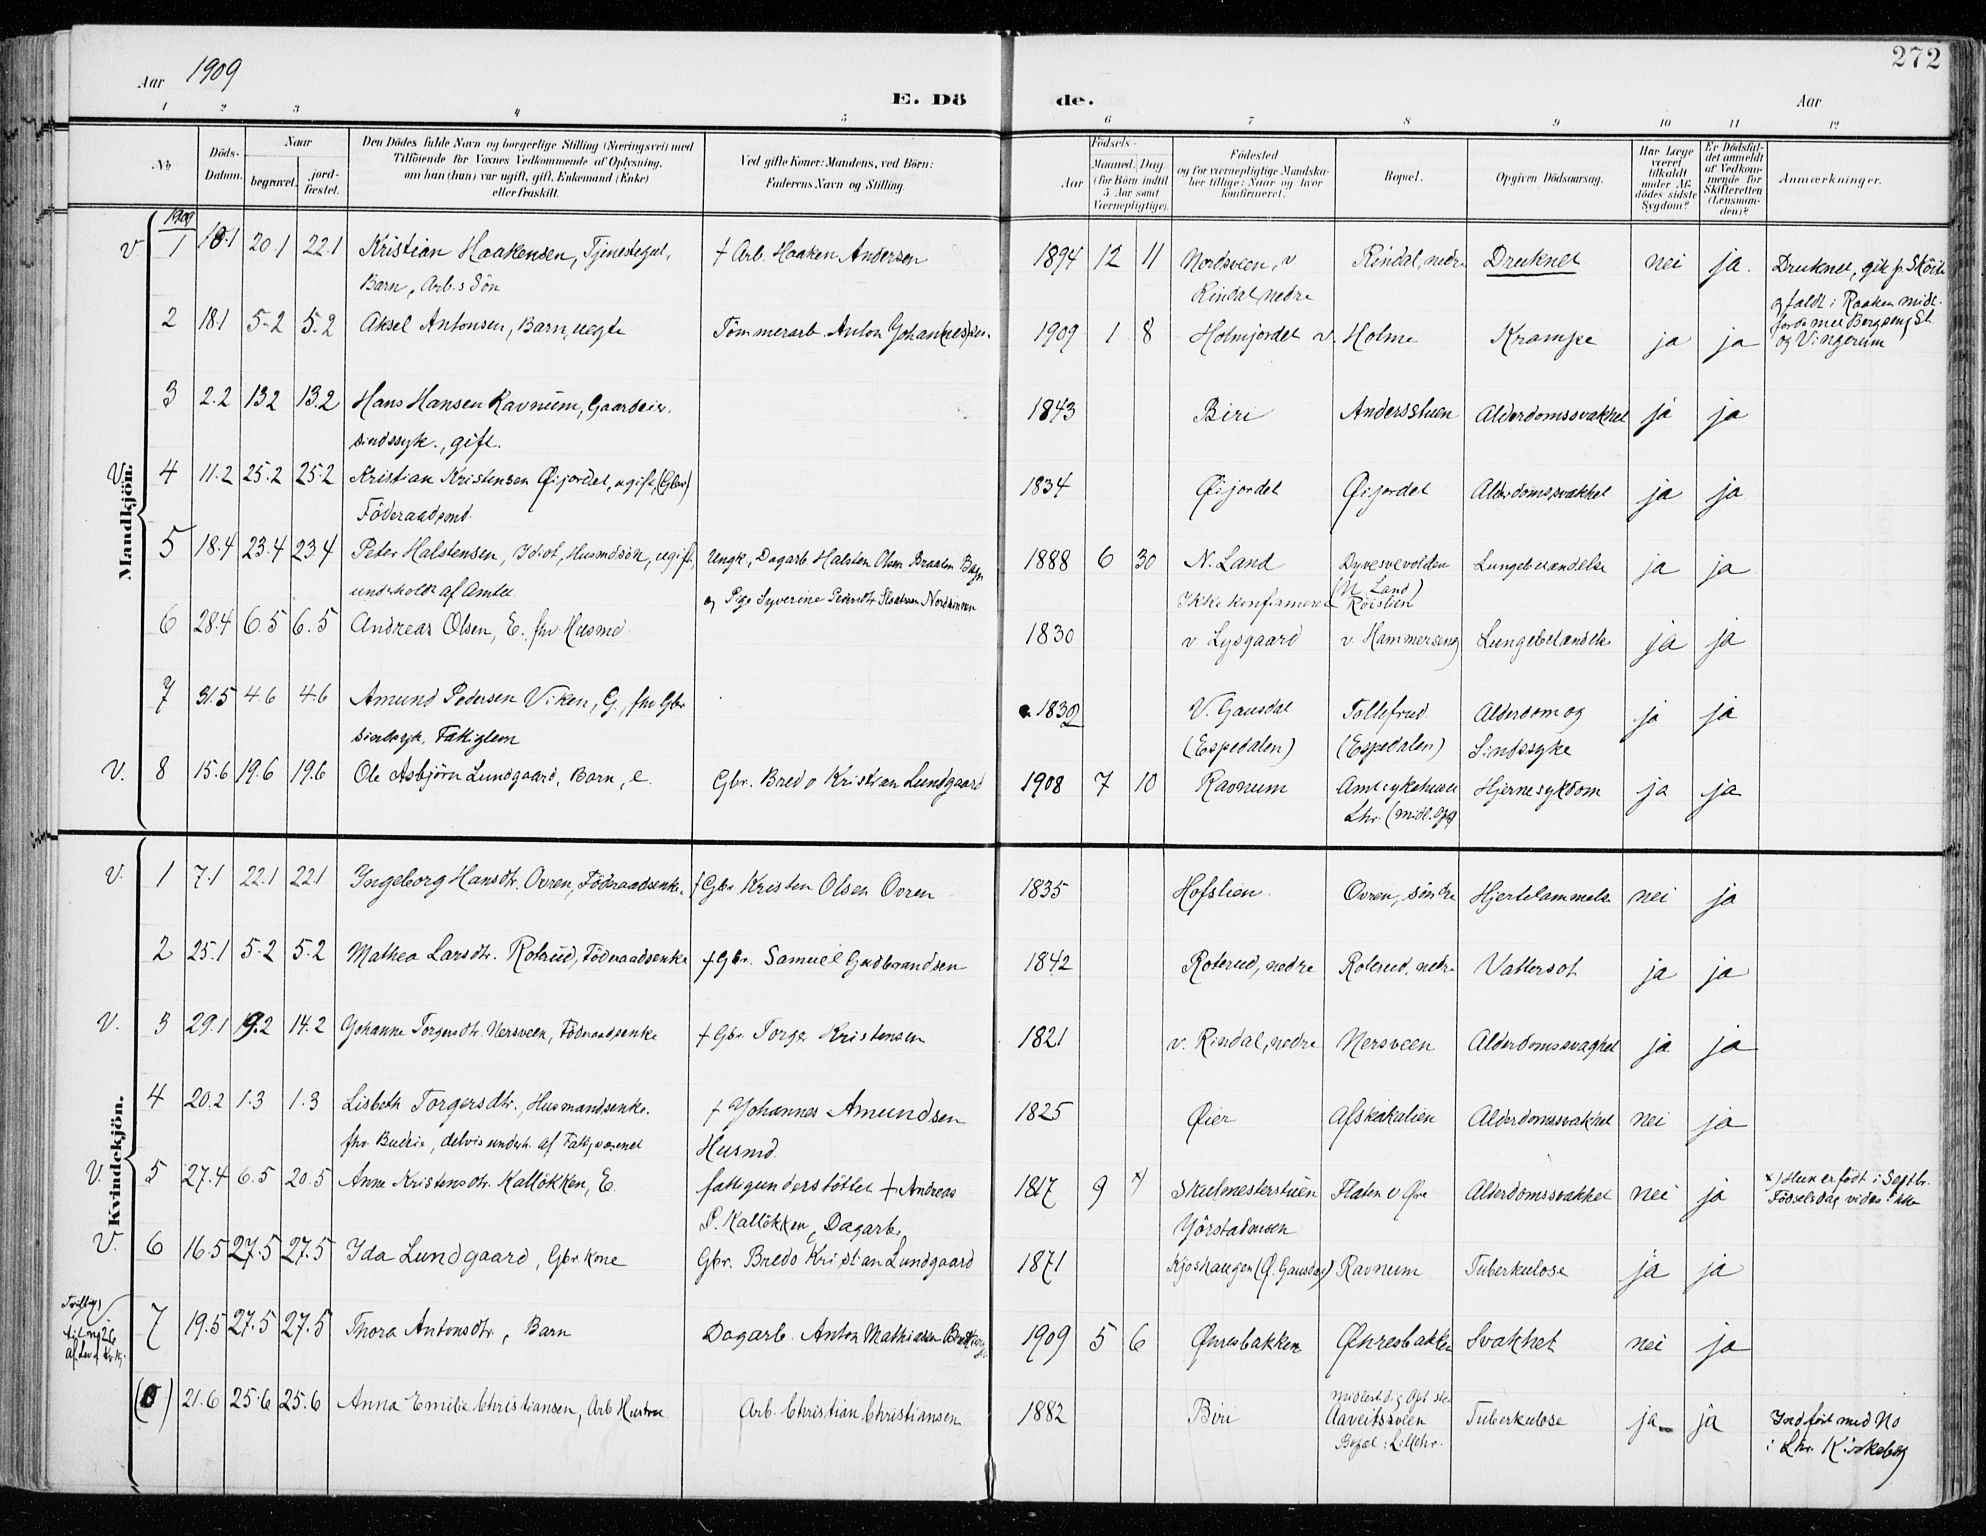 272
Aar 1909
E. Dö de.
Aar
1 2 3 4 5 6 7 8 9 10 11 12
No
Döds-Datum.
Naar
begravet.
jord-fæstet.
Den Dödes fulde Navn og borgerlige Stilling (Næringsvei) med
Tilföiende for Voxnes Vedkommende af Oplysning,
om han (hun) var ugift, gift, Enkemand (Enke)
eller fraskilt.
Ved gifte Koner: Mandens, ved Börn:
Faderens Navn og Stilling.
Födsels-
Aar
Maaned. Dag.
(for Börn indtil
5 Aar samt
Værnepligtige).
Födested
og for værnepligtige Mandska-
ber tillige: Naar og hvor
konfirmeret.
Bopæl.
Opgiven Dödsaarsag.
Har Læge
været
tilkaldt
under Af-
dödes sidste
Sygdom?
Er Dödsfal-
det anmeldt
af Vedkom-
mende for
Skifteretten
(Lensman-
den)?
Anmærkninger.
Mandkjön.
1909
V. 1 18.1 20.1 22.1 Kristian Haakensen, Tjenestegut, † Arb. Haaken Andersen 1894 12 11 Nordsveen, v Rindal, nedre Druknet nei ja. Druknet, gik p. Sköit
Barn, Arb.s Sön Rindal, nedre og faldt i Raaken midt-
2 18.1 5.2 5.2 Aksel Antonsen, Barn, uegte Tömmerarb. Anton Johannessen 1909 1 8 Holmjordet v. Holme Krampe ja ja
mel Bergseng St.
og Vingerum
3 2.2 13.2 13.2 Hans Hansen Ravnum, Gaardeier, 1843 Biri Andersstuen Alderdomssvakhet ja ja
sindssyk., gift.
V. 4 11.2 25.2 25.2 Kristian Kristensen Øijordet, ugift, (Gbr) 1834 Øijordet Øijordet Alderdomssvakhet ja ja
Föderaadsmd.
5 18.4 23.4 23.4 Peter Halstensen, Idiot, Husmdsön, ugift, Ungk., Dagarb. Halsten Olsen Braaten Bagn 1888 6 30 N. Land Lungebetændelse ja ja
underholdt af Amtet og Pige Syverine Ikke konfirmeret (N. Land)
6 28.4 6.5 6.5 Andreas Olsen, E. fhv Husmd. 1830 v Lysgaard v Hammerseng Lungebetændelse ja ja
7 31.5 4.6 4.6 Amund Pedersen Viken, G., fhv Gbr 1830 V. Gausdal Tollefrud Alderdom og ja ja
sindssyk, Fattiglem (Espedalen) (Espedalen) Sindssyke
V. 8 15.6 19.6 19.6 Ole Asbjörn Lundgaard, Barn, e. Gbr. Bredo Kristian Lundgaard 1908 7 10 Ravnum Amtssykehuset Hjernesykdom ja ja
Lhr. (midl. Oph)
Kvindekjön.
V. 1 7.1 22.1 22.1 Ingeborg Hansdtr. Ovren, Föderaadsenke. † Gbr. Kristen Olsen Ovren 1835 Hofslien. Ovren, söndre Hjertelammelse nei ja
2 25.1 5.2 5.2 Mathea Larsdtr. Roterud, Föderaadsenke † Gbr. Samuel Gudbrandsen 1842 Roterud, nedre Roterud, nedre Vattersot ja ja
V. 3 29.1 19.2 14.2 Johanne Torgersdtr. Nersveen, Föderaadsenke † Gbr. Torger Kristensen 1821 v. Rindal, nedre Nersveen Alderdomssvaghet ja ja
4 20.2 1.3 1.3 Lisbeth Torgersdtr., Husmandsenke. † Johannes Amundsen 1825 Øier Afskakalien Alderdomssvakhet nei ja
fhv. Budeie, delvis underh. af Fattigvæsenet Husmd.
V. 5 27.4 6.5 20.5 Anne Kristensdtr. Kallökken, E. fattigunderstöttet † Andreas 1817 9 x) Skulmesterstuen Flaten v Øvre Alderdomssvakhet nei ja x) Hun er födt i Septbr.
P. Kallökken, Dagarb. Jörstadmoen Födselsdag vides ikke
V. 6 16.5 27.5 27.5 Ida Lundgaard, Gbr. kone Gbr. Bredo Kristian Lundgaard 1871 Kjoshaugen (Ø. Gausdal) Ravnum Tuberkulose ja ja
Tvilling
til no 26
7 19.5 27.5 27.5 Thora Antonsdtr, Barn Dagarb. Anton Mathiasen 1909 5 6 Øhresbakken Øhresbakken Svakhet nei ja
(8) 21.6 25.6 25.6 Anna Emilie Christiansen, Arb. Hustru Arb. Christian Christiansen 1882 Biri Midlertidig Opf. sted Tuberkulose ja ja Indfört med No
Aaveitsveen i Lhr. Kirkebog
Bopæl: Lillehr.